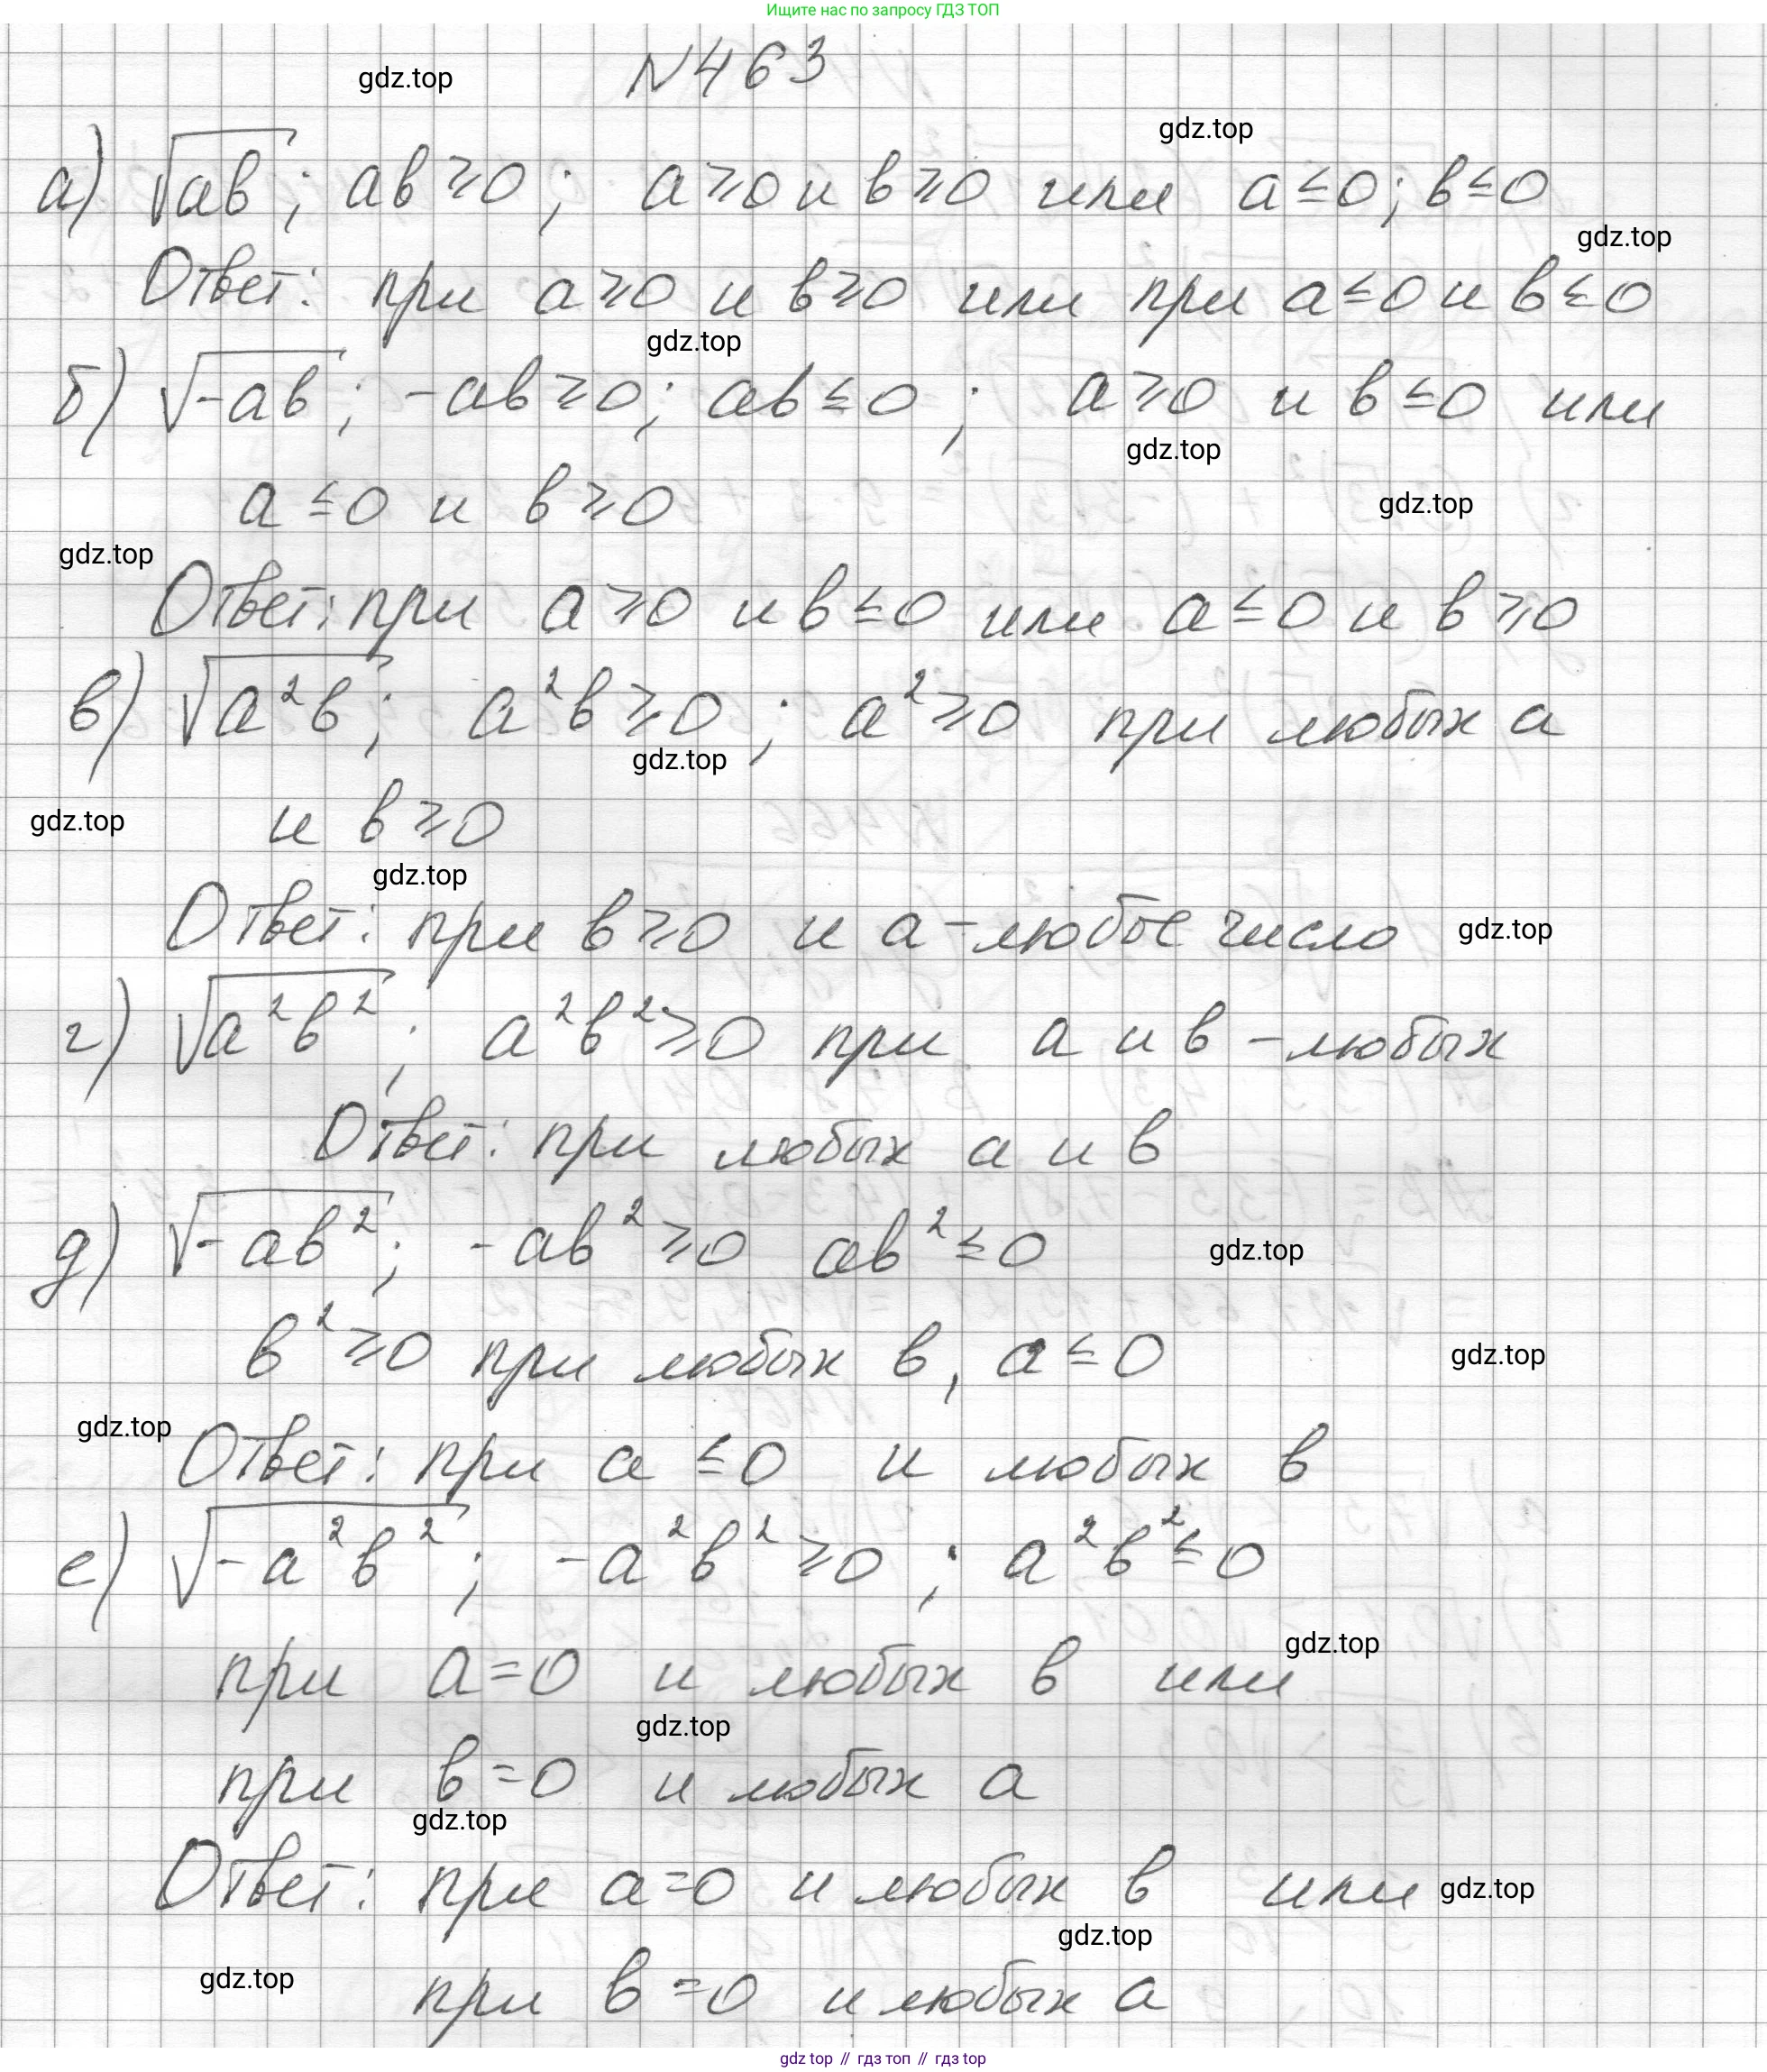 Ищите нас по запросу ГДЗ ТОП
N463
gdz.top
gdz.top
а) √ab; ab ≥ 0; a ≥ 0 и b ≥ 0 или a ≤ 0; b ≤ 0
gdz.top
Ответ: при a ≥ 0 и b ≥ 0 или при a ≤ 0 и b ≤ 0
gdz.top
б) √-ab; -ab ≥ 0; ab ≤ 0; a ≥ 0 и b ≤ 0 или
gdz.top
a ≤ 0 и b ≥ 0
gdz.top
gdz.top
Ответ: при a ≥ 0 и b ≤ 0 или a ≤ 0 и b ≥ 0
в) √a²b; a²b ≥ 0; a² ≥ 0 при любых a
gdz.top
gdz.top
и b ≥ 0
gdz.top
Ответ: при b ≥ 0 и a - любое число
gdz.top
г) √a²b²; a²b² ≥ 0 при a и b - любых
Ответ: при любых a и b
д) √-ab²; -ab² ≥ 0 ab² ≤ 0
gdz.top
b² ≥ 0 при любых b, a ≤ 0
gdz.top
gdz.top
Ответ: при a ≤ 0 и любых b
е) √-a²b²; -a²b² ≥ 0; a²b² ≤ 0
gdz.top
при a = 0 и любых b или
gdz.top
при b = 0 и любых a
gdz.top
Ответ: при a = 0 и любых b или
gdz.top
gdz.top
gdz.top
при b = 0 и любых a
gdz top // гдз топ // гдз top